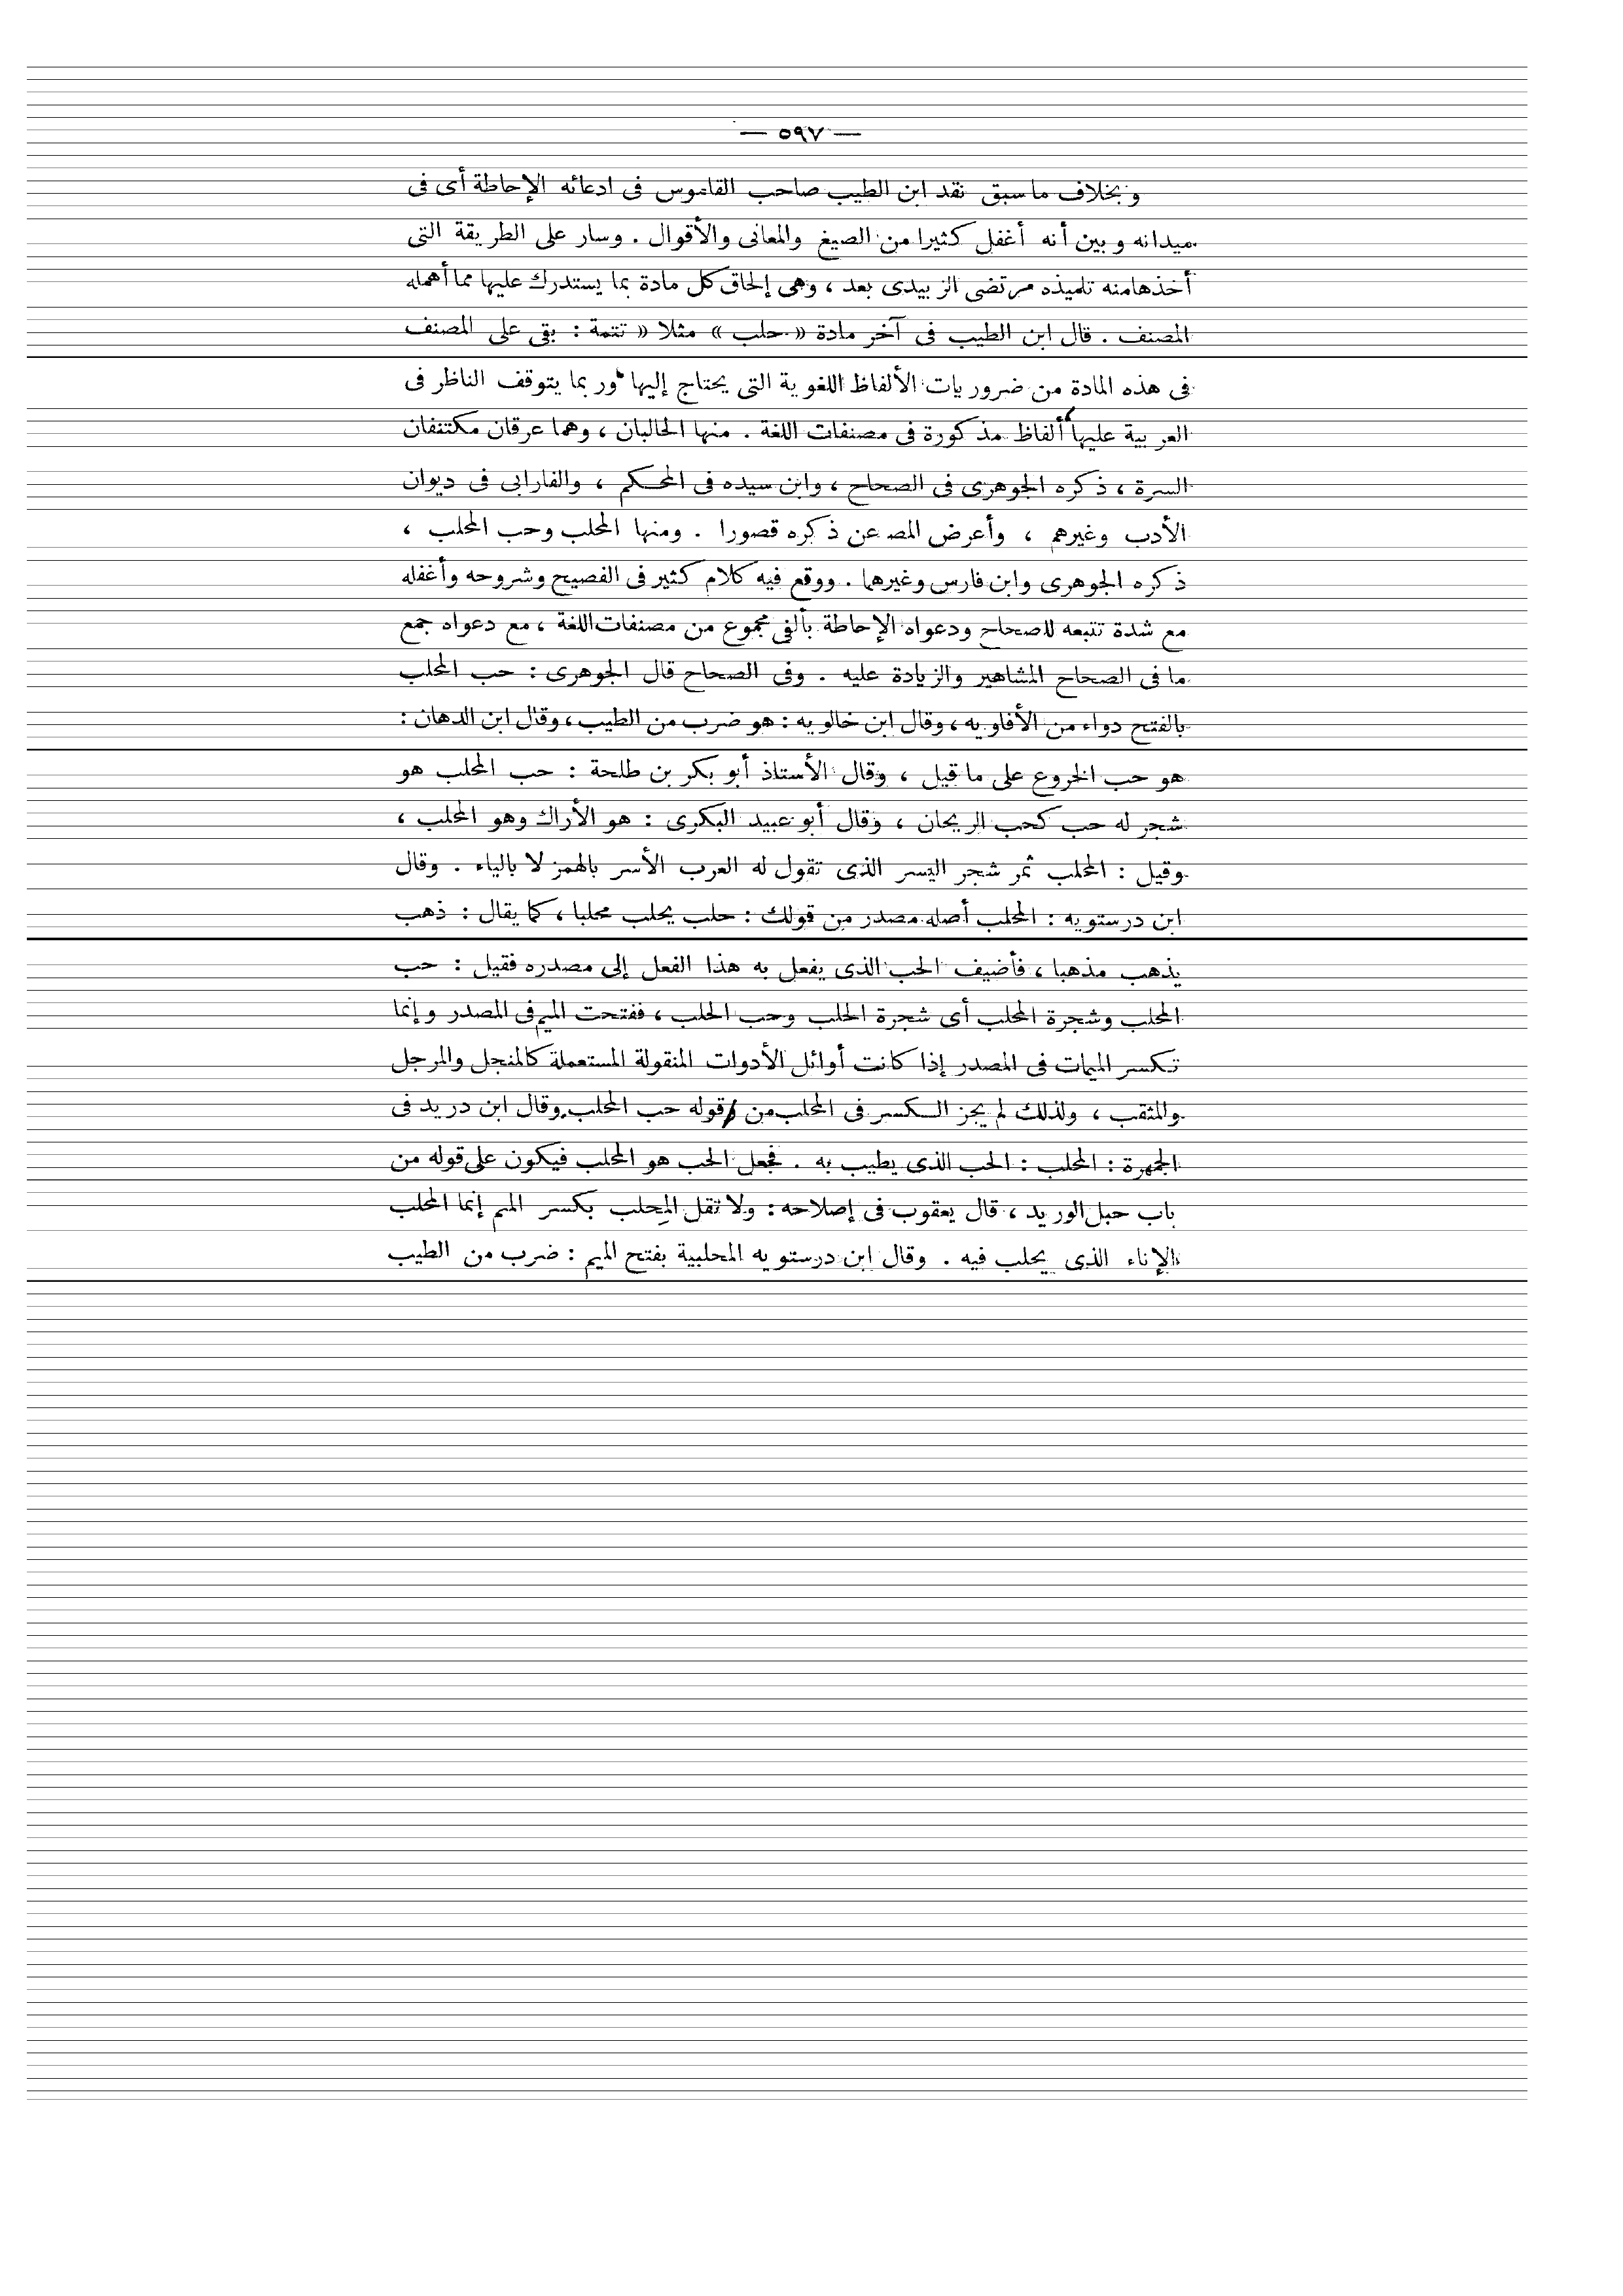 — ٥٩٧ —
وبخلاف ما سبق نقد ابن الطيب صاحب القاموس فى ادعائه الإحاطة أى فى
ميدانه وبين أنه أغفل كثيرا من الصيغ والمعانى والأقوال . وسار على الطريقة التى
أخذها منه تلميذه مرتضى الزبيدى بعد ، وهى إلحاق كل مادة بما يستدرك عليها مما أهمله
المصنف . قال ابن الطيب فى آخر مادة « حلب » مثلا « تتمة : بقى على المصنف
فى هذه المادة من ضروريات الألفاظ اللغوية التى يحتاج إليها وربما يتوقف الناظر فى
العربية عليها ألفاظ مذكورة فى مصنفات اللغة . منها الحالبان ، وهما عرقان مكتنفان
السرة ، ذكره الجوهرى فى الصحاح ، وابن سيده فى المحكم ، والفارابى فى ديوان
الأدب وغيرهم ، وأعرض المصـ عن ذكره قصورا . ومنها المحلب وحب المحلب ،
ذكره الجوهرى وابن فارس وغيرهما . ووقع فيه كلام كثير فى الفصيح وشروحه وأغفله
مع شدة تتبعه للصحاح ودعواه الإحاطة بألفى مجموع من مصنفات اللغة ، مع دعواه جمع
ما فى الصحاح المشاهير والزيادة عليه . وفى الصحاح قال الجوهرى : حب المحلب
بالفتح دواء من الأفاويه ، وقال ابن خالويه : هو ضرب من الطيب ، وقال ابن الدهان :
هو حب الخروع على ما قيل ، وقال الأستاذ أبو بكر بن طلحة : حب المحلب هو
شجر له حب كحب الريحان ، وقال أبو عبيد البكرى : هو الأراك وهو المحلب ،
وقيل : المحلب ثمر شجر اليسر الذى تقول له العرب الأسر بالهمز لا بالياء . وقال
ابن درستويه : المحلب أصله مصدر من قولك : حلب يحلب محلبا ، كما يقال : ذهب
يذهب مذهبا ، فأضيف الحب الذى يفعل به هذا الفعل إلى مصدره فقيل : حب
المحلب وشجرة المحلب أى شجرة الحلب وحب الحلب ، ففتحت الميم فى المصدر وإنما
تكسر الميمات فى المصدر إذا كانت أوائل الأدوات المنقولة المستعملة كالمنجل والمرجل
والمثقب ، ولذلك لم يجز الكسر فى المحلب من قوله حب المحلب . وقال ابن دريد فى
الجمهرة : المحلب : الحب الذى يطيب به . فجعل الحب هو المحلب فيكون على قوله من
باب حبل الوريد ، قال يعقوب فى إصلاحه : ولا تقل المِحلب بكسر الميم إنما المحلب
الإناء الذى يحلب فيه . وقال ابن درستويه المحلبية بفتح الميم : ضرب من الطيب